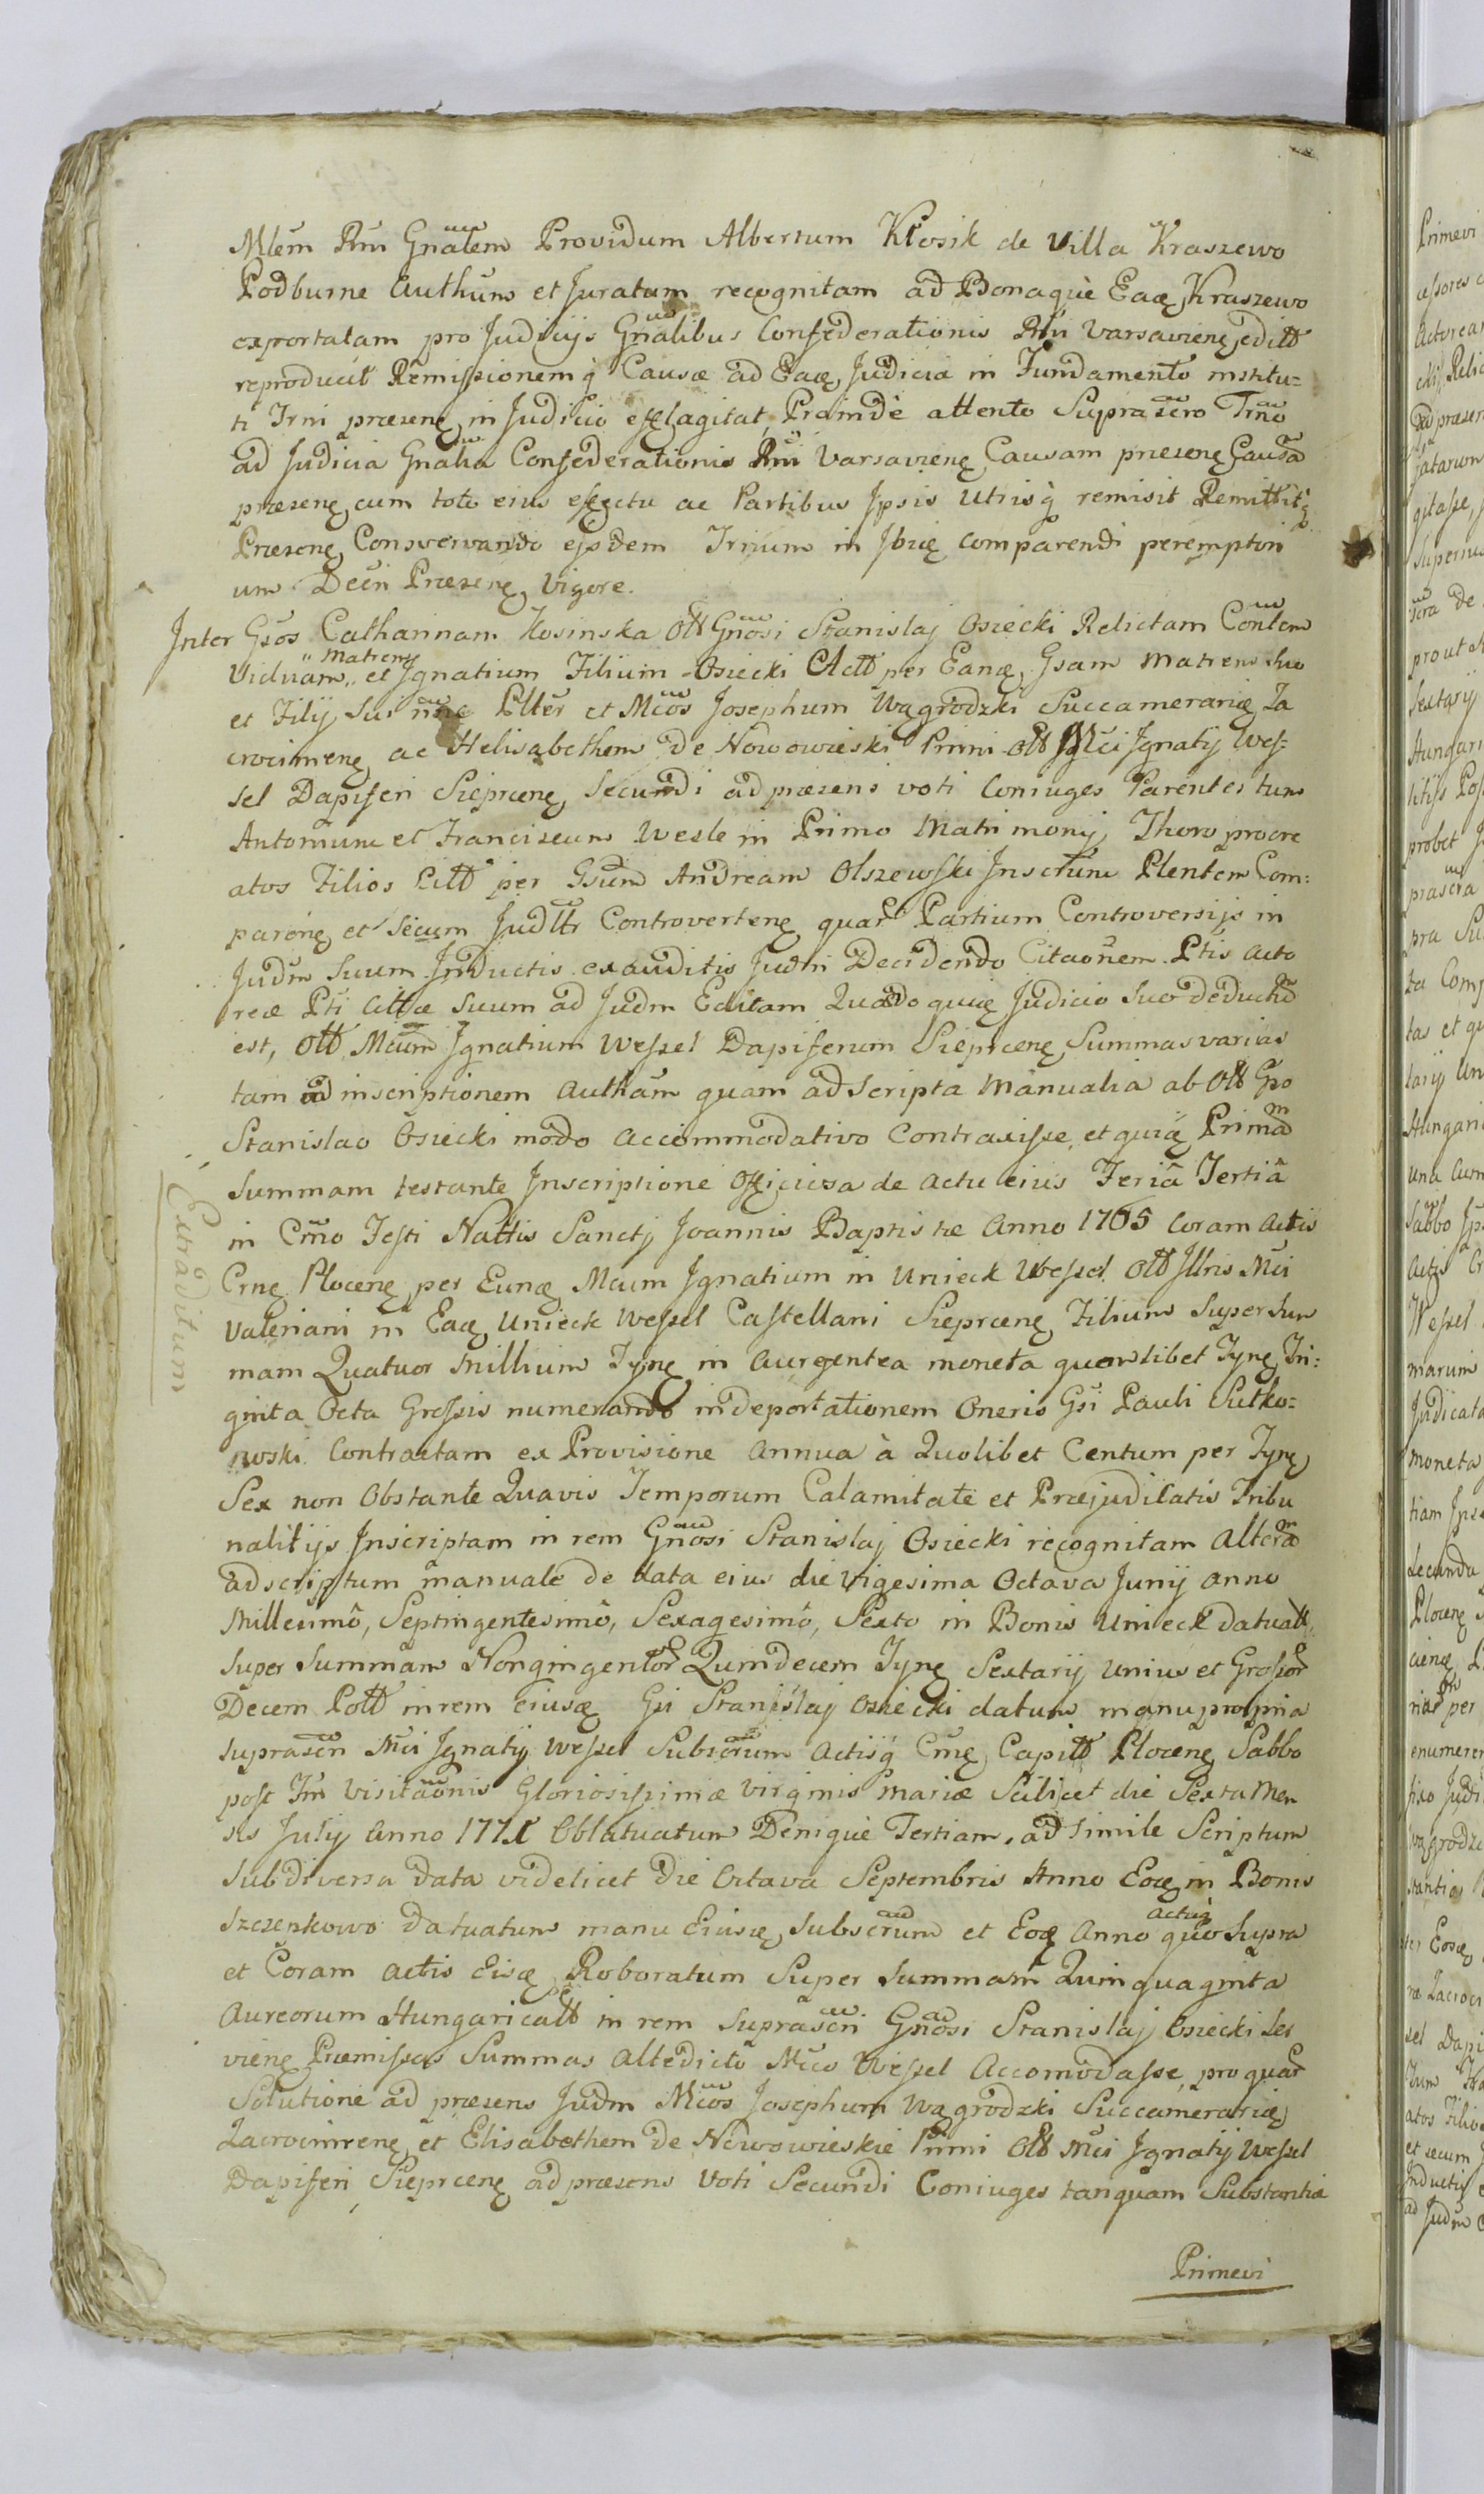 Mlem Rni Gnalem Providum Albertum Kłosik de Villa Kraszewo
Podburne Authum et Juratam recognitam ad Bonaque Eaę Kraszewo
exportatam pro Judicijs Gnalibus Confederationis Rni Varsavienę editt
reproducit Remissionemq Causæ ad Eaę Judicia in Fundamento institu=
ti Trni præsenę in Judicio efflagitat, Proinde attento Suprascro Trno
ad Judicia Gnalia Confederationis Rni Varsavienę Causam præsenę Causa
præsenę cum toto eius effectu ac Partibus Ipsis Utrisq remisit Remittitq
Præsenę Conservando ejsdem Trnum in Ibię comparendi peremptori
um Decri Præsenę Vigore.
Inter Gsos Catharinam Kosinska Ott Gnosi Stanislaj Osiecki Relictam Contem
Viduam Matrem et Ignatium Filium Osiecki Actt per Eanę Gsam Matrem suo
et Filij Sui nne Ptter et Mcos Josephum Wągrodzki Succamerarię Za
crocimenę ac Helisabetham de Nowowieski Primi Ott Mci Ignatij Wes=
sel Dapiferi Sieprcenę Secundi ad præsens voti Coniuges Parentes tum
Antonium et Franciscum Wesle in Primo Matrimonij Thoro procre
atos Filios Citt per Gsum Andream Olszewski Inscrum Plentem Com:
parenę et Secum Judltr Controvertenę quar Partium Controversijs in
Judm Suum Inductis exauditis Judm Decidendo Citaonem Ptis Acto
reæ Pti Cittæ Suum ad Judm Editam Quando quię Judicio Suo deductu
est, Ott Mcum Ignatium Wessel Dapiferum Sieprcenę Summas varias
tam ad inscriptionem Autham quam ad Scripta Manualia ab Ott Gso
Stanislao Osiecki modo accommodativo Contraxisse, et quię Primam
Summam testante Inscriptione Officiosa de actu eius Feria Tertia
in Crno Festi Nattis Sanctj Joannis Baptistæ Anno 1765 Coram Actis
Crnę Plocenę per Eunę Mcum Ignatium in Unieck Wessel Ott Jllris Mci
Valeriani in Eaę Unieck Wessel Castellani Sieprcenę Filium Super Sum
mam Quatuor Millium Tynę in Aurgentea moneta quemlibet Tynę Tri:
ginta Octa Grossis numerando in deportationem Oneris Gsi Pauli Sutko=
wski Contractam ex Provisione Annua à Quolibet Centum per Tynę
Sex non Obstante Quavis Temporum Calamitate et Præjudicatis Tribu
nalitijs Inscriptam in rem Gnosi Stanislaj Osiecki recognitam Alteram
ad scriptum manuale de data eius die Vigesima Octava Junij Anno
Millesimô, Septingentesimô, Sexagesimô, Sexto in Bonis Unieck datuatt
Super Summam Nongingentor Quindecem Tynę Sextarij Unius et Grossor
Decem Pott in rem eiusę Gsi Stanislaj Osiecki datum manu propria
suprascri Mci Ignatij Wessel Subscrum Actisq Crnę Capitt Plocenę Sabbo
post Fm Visitaonis Gloriosissimæ Virginis Mariæ Scilicet die Sexta Men
sis Julij Anno 1771 Oblatuatum Denique Tertiam, ad simile Scriptum
Sub diversa data videlicet Die Octava Septembris Anno Eoę in Bonis
Szczepkowo datuatum manu Eiusę, Subscrum et Eoę Anno Actuq quo Supra
et Coram Actis Eisę Roboratum Super Summam Quinquaginta
Aureorum Hungaricalt in rem Suprascri Gnosi Stanislaj Osiecki Ser
vienę Præmissas Summas Altedicto Mco Wessel Accomodasse, pro quar
Solutione ad præsens Judm Mcos Josephum Wągrodzki Succamerarię
Zacrocimenę et Elisabetham de Nowowieskie Primi Ott Mci Ignatij Wessel
Dapiferi Sieprcenę ad præsens Voti Secundi Coniuges tanquam Substantiæ
Primevi
Extraditum